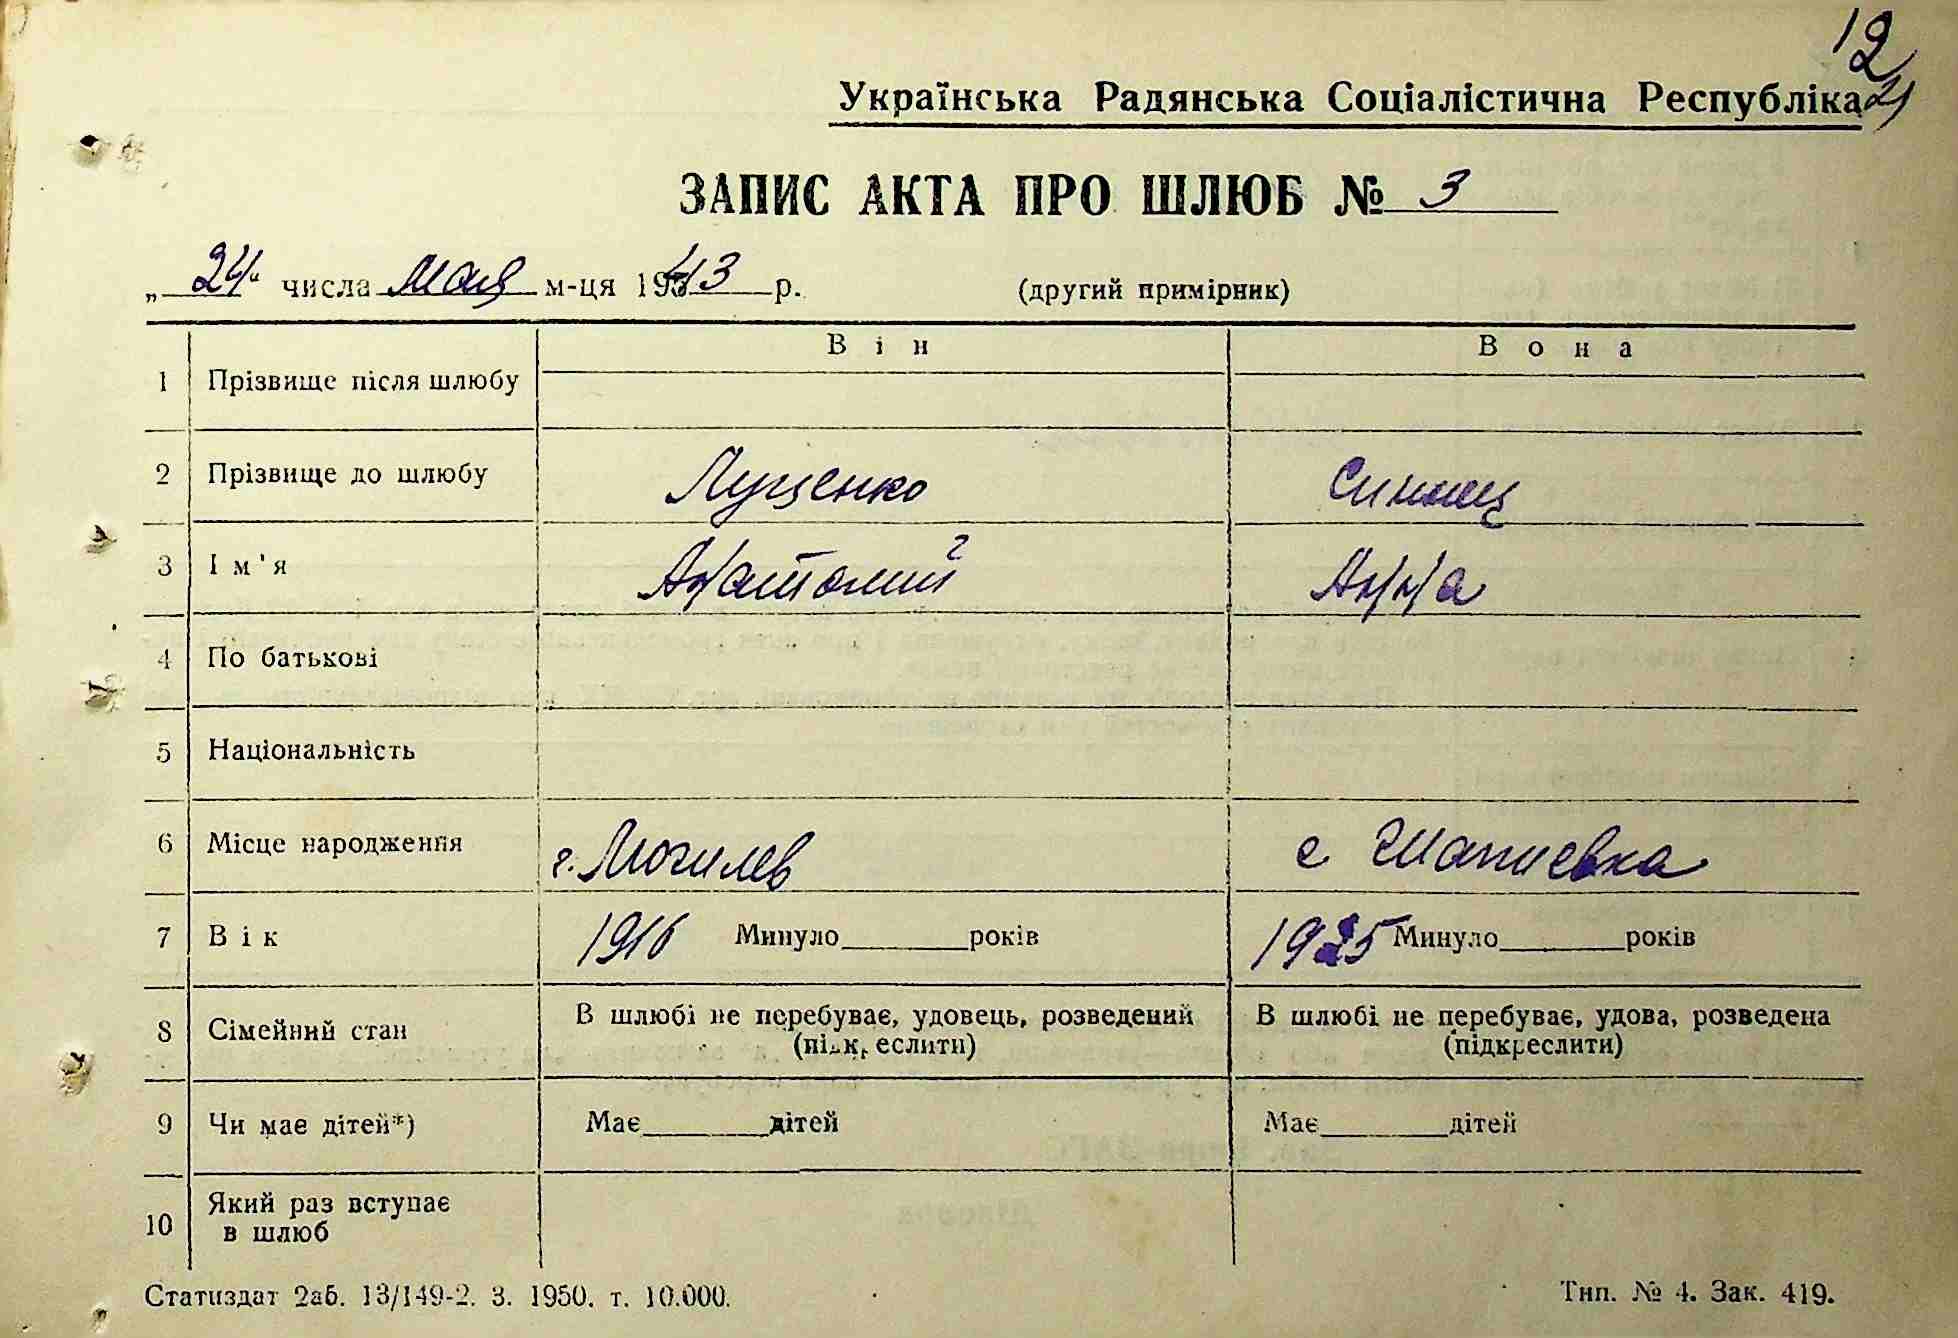 12
21
Українська Радянська Соціалістична Республіка
ЗАПИС АКТА ПРО ШЛЮБ № 3
„24“ числа мая м-ця 1943 р. (другий примірник)
Він Вона
1 Прізвище після шлюбу
2 Прізвище до шлюбу Луценко Синиец
3 Ім'я Анатолий Анна
4 По батькові
5 Національність
6 Місце народження г. Могилев с Шапиевка
7 Вік 1916 Минуло______років 1925 Минуло______років
8 Сімейний стан В шлюбі не перебуває, удовець, розведений (підкреслити) В шлюбі не перебуває, удова, розведена (підкреслити)
9 Чи має дітей*) Має______дітей Має______дітей
10 Який раз вступає
в шлюб
Статиздат 2аб. 13/149-2. 3. 1950. т. 10.000. Тип. № 4. Зак. 419.